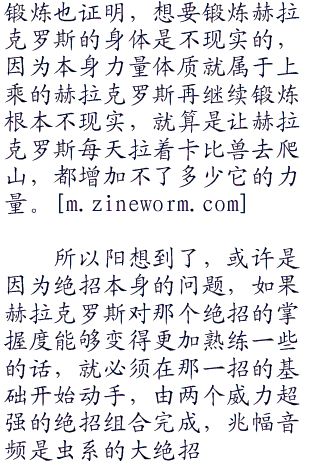 锻炼也证明，想要锻炼赫拉
克罗斯的身体是不现实的，
因为本身力量体质就属于上
乘的赫拉克罗斯再继续锻炼
根本不现实，就算是让赫拉
克罗斯每天拉着卡比兽去爬
山，都增加不了多少它的力
量。[m.zineworm.com]
所以阳想到了，或许是
因为绝招本身的问题，如果
赫拉克罗斯对那个绝招的掌
握度能够变得更加熟练一些
的话，就必须在那一招的基
础开始动手，由两个威力超
强的绝招组合完成，兆幅音
频是虫系的大绝招